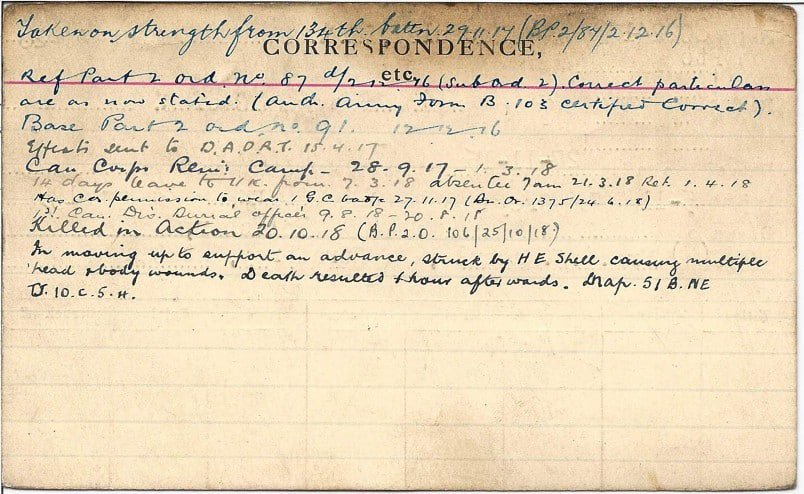 Taken on strength from 134th battn 29.11.17 (B.P.2/87/2.12.16)
CORRESPONDENCE,
etc.
Ref Part 2 ord. No. 87 d/2.12.16 (Sub Ord. 2). Correct particulars
are as now stated. (Auth. Army Form B. 103 certified Correct).
Base Part 2 ord. no. 91. 12.12.16
Effects sent to D.A.D.R.T. 15.4.17
Can. Corps Reinf Camp - 28.9.17 - 1.3.18
14 days leave to U.K. from 7.3.18 absentee from 21.3.18 Ret. 1.4.18
Has Cor. permission to wear 1 G.C. badge 27.11.17 (Bn. Or. 1375/24.6.18)
1st Can. Div. Burial officer 9.8.18 - 20.8.18
Killed in Action 20.10.18 (B.P.2.O. 106/25/10/18)
In moving up to support an advance, struck by H E Shell causing multiple
head & body wounds. Death resulted 1 hour afterwards. Map. 51 B. NE
10.C.5.4.